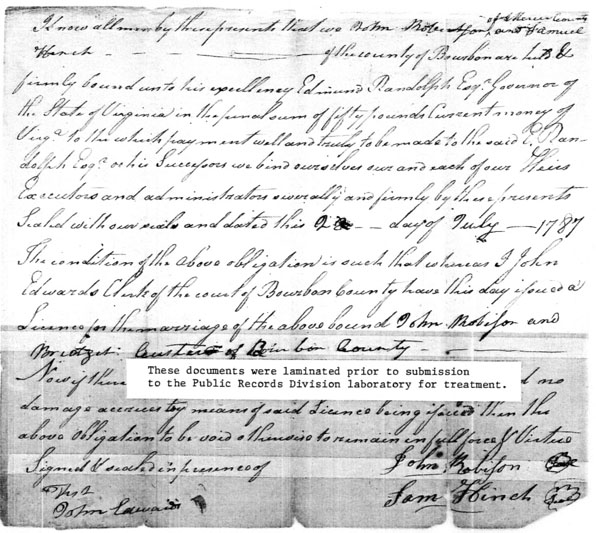 Know all men by these presents that we John Robertson, of Mercer County and Samuel
Hinch of the county of Bourbon are held &
firmly bound unto his excellency Edmund Randolph Esqr. Governor of
the State of Virginia in the penal sum of fifty pounds Current money of
Virga. to the which payment well and truly to be made to the said E. Ran-
dolph Esqr. or his Successors we bind ourselves our and each of our Heirs
Executors and administrators severally and firmly by these presents
Sealed with our seals and dated this day of July 1787
The condition of the above obligation is such that whereas I John
Edwards Clerk of the court of Bourbon County have this day issued a
Licence for the marriage of the above bound John Robison and
of Bourbon County
Now if there no
These documents were laminated prior to submission
to the Public Records Division laboratory for treatment.
damage accrues by means of said Licence being issued then the
above obligation to be void otherwise to remain in full force & Virtue
Signed & sealed in presence of John Robison
Test Sam Hinch
John Edwards